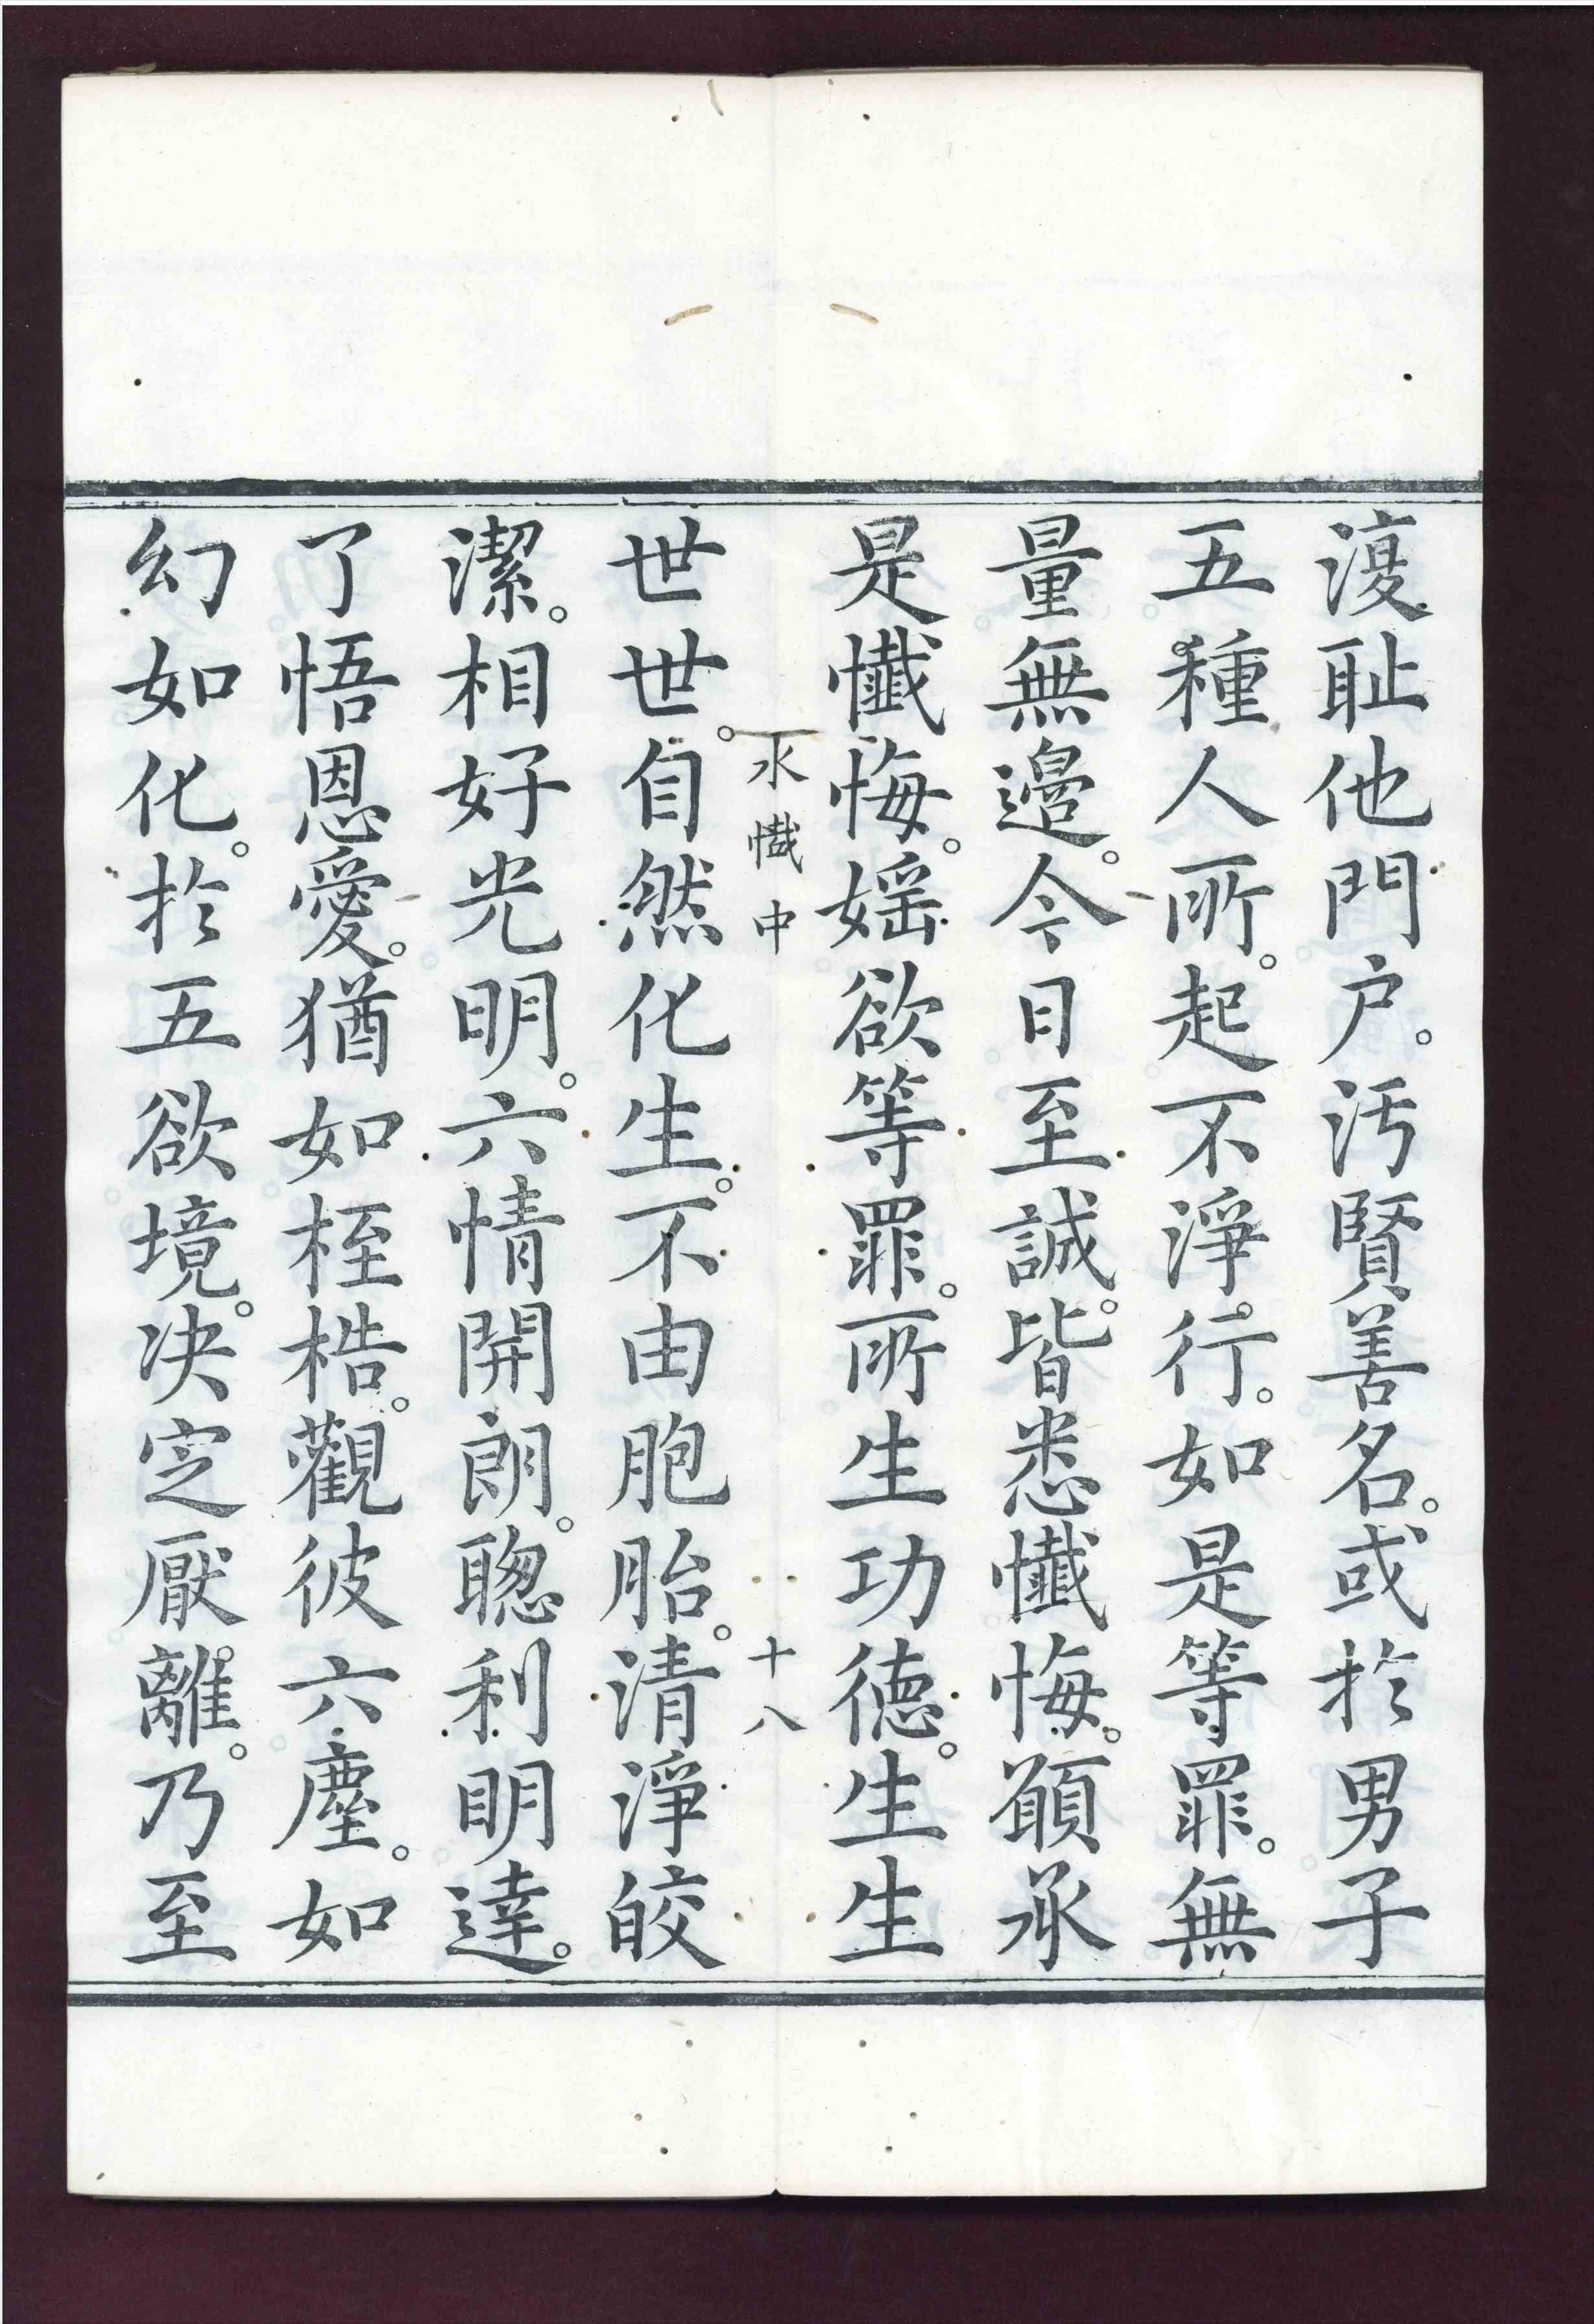 溲恥他門戶。汚賢善名。或於男子
五種人所。起不淨行。如是等罪。無
量無邊。今日至誠。皆悉懺悔。願承
是懺悔。婬欲等罪。所生功德。生生
水懺中 十八
世世。自然化生。不由胞胎。清淨皎
潔。相好光明。六情開朗。聰利明達。
了悟恩愛。猶如桎梏。觀彼六塵。如
幻如化。於五欲境。決定厭離。乃至